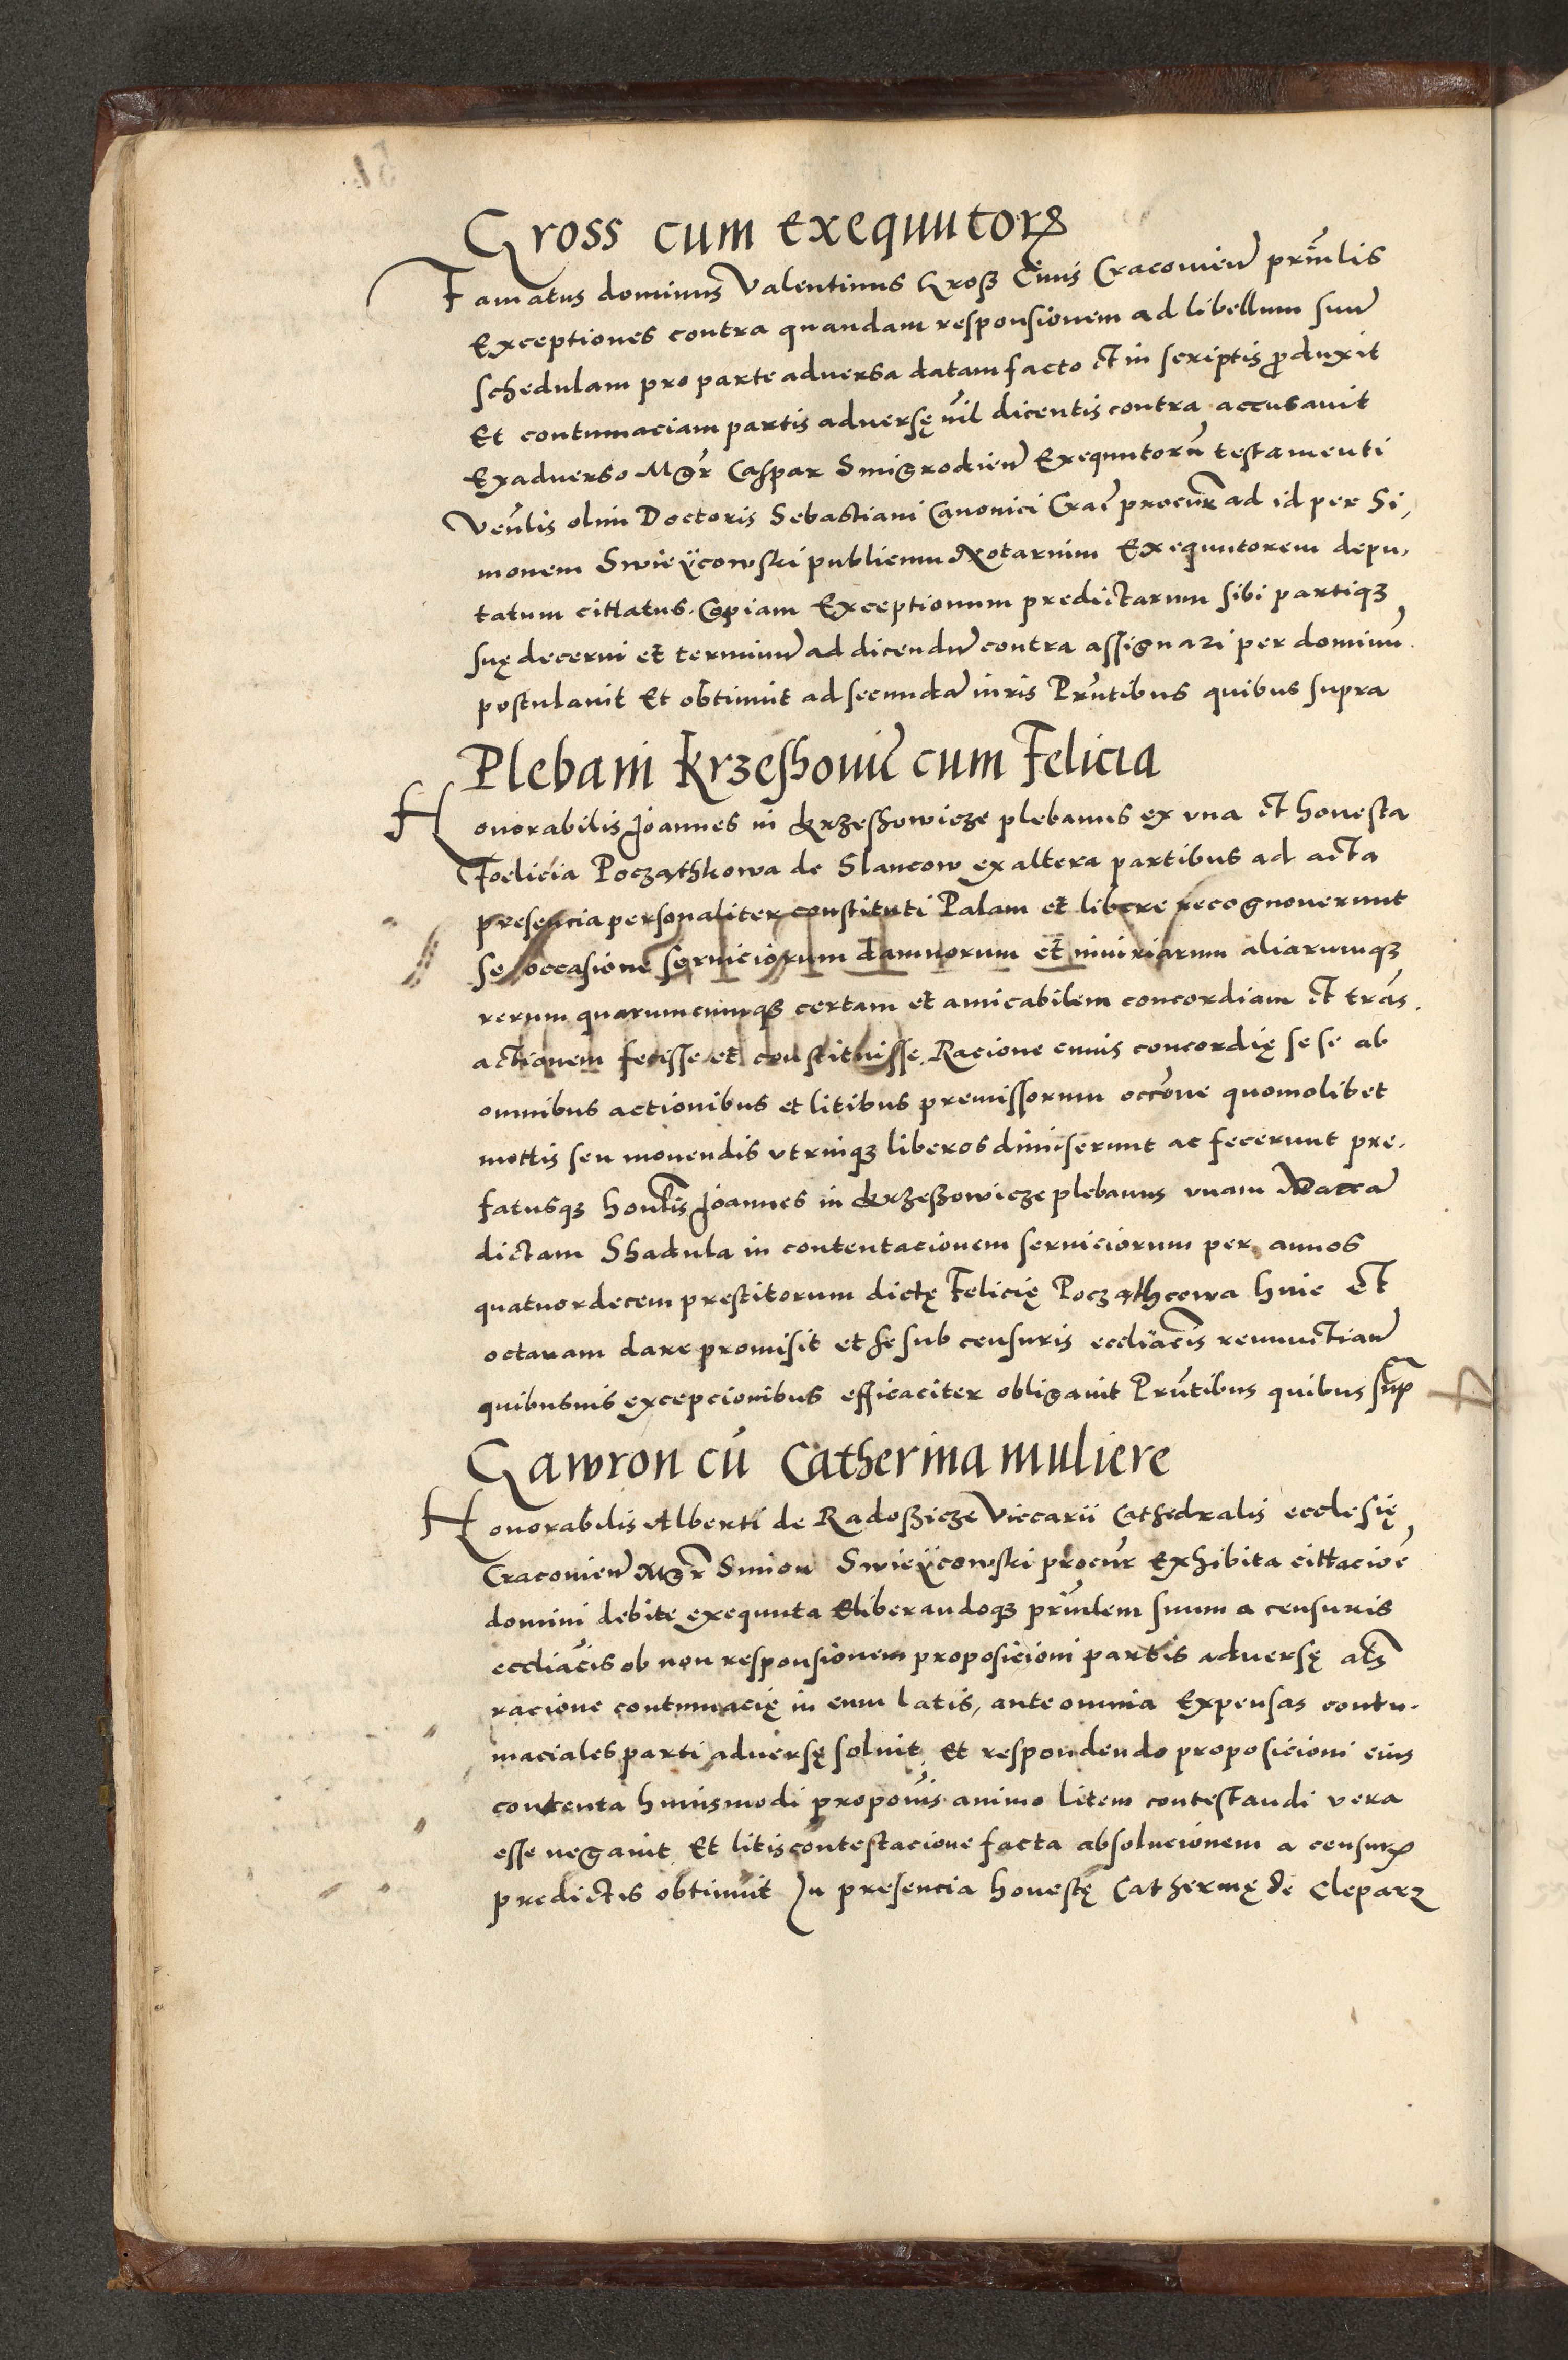 Gross cum exequutorꝫ
Famatus dominus Valentinus Groß Civis Cracovien̄ prin̄lis
Exceptiones contra quandam responsionem ad libellum suū
schedulam pro parte adversa datam facto et in scriptis ꝓduxit
Et contumaciam partis adversę nīl dicentis contra accusavit
Exadverso Mgr̄ Caspar Smigrodien̄ Exequutorū testamenti
Ven̄lis olim Doctoris Sebastiani Canonici Crac̄ procur̄ ad id per Si,
monem Swieÿcowski publicum Notarium Exequutorem depu,
tatum cittatus. Copiam Exceptionum predictarum sibi partiqꝫ
suę decerni et terminū ad dicendū contra assignari per dominū.
postulavit Et obtinuit ad secundā iuris Prn̄tibus quibus supra
Plebani Krzeshovic̄ cum Felicia
Honorabilis Joannes in Krzeßowicze plebanus ex una et honesta
Foelicia Poczathkowa de Slancow ex altera partibus ad acta
presencia personaliter constituti Palam et libere recognoverunt
se occasione serviciorum damnorum et iniuriarum aliarumqꝫ
rerum quarumcumqꝫ certam et amicabilem concordiam et trās.
actionem fecisse et constituisse. Racione cuius concordię se se ab
omnibus actionibus et litibus premissorum occōne quomolibet
mottis seu movendis utrinqꝫ liberos dimiserunt ac fecerunt pre.
fatusqꝫ honr̄lis Joannes in Krzeßowicze plebanus unam Vaccā
dictam Shadula in contentacionem serviciorum per annos
quatuordecem prestitorum dictę Felicię Poczathcowa hinc et
octavam dare promisit et se sub censuris eccliāc̄is renunctian̄
quibusvis excepcionibus efficaciter obligavit Prn̄tibus quibus sup̄
Gawron cū Catherina muliere
Honorabilis Alberti de Radoßicze Viccarii Cathedralis ecclesię
Cracovien̄ Mgr̄ Simon Swieÿcowski procur̄ Exhibita cittaciōe
domini debite exequuta Eliberandoqꝫ prin̄lem suum a censuris
eccliāc̄is ob non responsionem proposicioni partis adversę als̄
racione contumacię in eum latis, ante omnia Expensas contu.
maciales parti adversę solvit. Et respondendo proposicioni eius
contenta huiusmodi propon̄is animo litem contestandi vera
esse negavit. Et litiscontestacione facta absolucionem a censurꝫ
predictis obtinuit In presencia honestę Catherinę de Cleparz